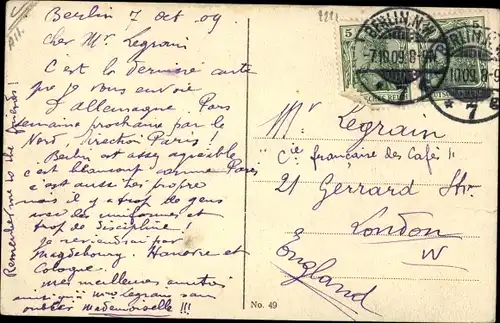 Berlin 7 oct 09
cher Mr Legrain
C'est la dernière carte
que je vous envoie
d'Allemagne Pars
semaine prochaine par le
Nord direction Paris
Berlin est assez agréable
c'est beaucoup comme Paris
c'est aussi très propre
mais il y a trop de gens
avec les uniformes et
trop de discipline !
je reviendrai par
Magdebourg. Hanovre et
Cologne.
mes meilleures amitiés
ainsi qu'à Mme Legrain sans
oublier Mademoiselle !!!
Remember me to the friends!
All.
5
BERLIN N.W.
-7.10.09. 8-9
* 7
BERLIN
10.09. 8-
* 7
Mr Legrain
"Cie française des Cafés"
21 Gerrard Str.
London
W
England
No. 49